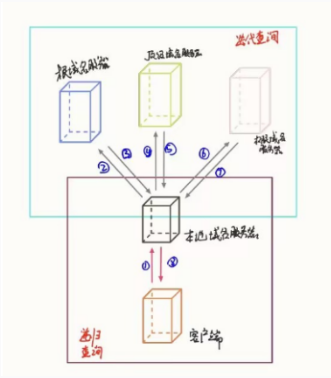 迭代查询
顶级域名服务器
根域名服务器
权限域名
服务器
③ ④ ⑤ ⑥
② ⑦
本地域名服务器
① ⑧
递归
查询
客户端